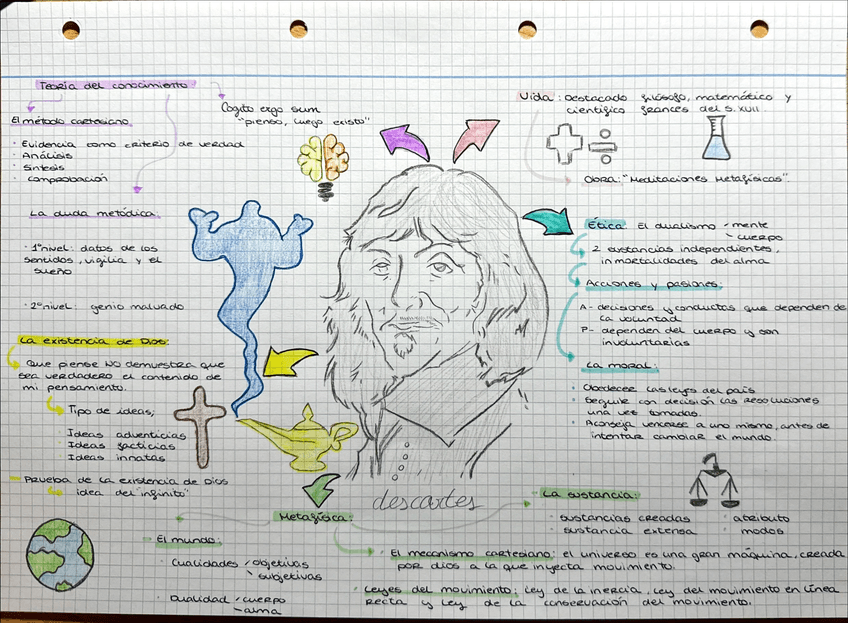 Teoría del conocimiento
El método cartesiano
· Evidencia como criterio de verdad
· Análisis
· Síntesis
· comprobación
Cogito ergo sum
"pienso, luego existo"
La duda metódica
· 1º nivel: datos de los
sentidos, vigilia y el
sueño
· 2º nivel: genio malvado
La existencia de Dios:
Que piense NO demuestra que
sea verdadero el contenido de
mi pensamiento.
Tipo de ideas;
· Ideas adventicias
· Ideas facticias
· Ideas innatas
Prueba de la existencia de Dios
idea del "infinito"
Vida: Destacado filósofo, matemático y
científico francés del s. XVII
Obra: "Meditaciones Metafísicas".
Ética: El dualismo mente
cuerpo
2 sustancias independientes,
inmortalidades del alma
Acciones y pasiones:
A- decisiones y conductas que dependen de
la voluntad
P- dependen del cuerpo y son
involuntarias
La moral:
· Obedecer las leyes del país
· Seguir con decisión las resoluciones
una vez tomadas.
· Aconseja vencerse a uno mismo, antes de
intentar cambiar el mundo.
descartes
Metafísica:
El mundo:
· Cualidades objetivas
subjetivas
· Dualidad cuerpo
alma
La sustancia:
· sustancias creadas · atributo
· sustancia extensa · modos
El mecanismo cartesiano: el universo es una gran máquina, creada
por dios a la que inyecta movimiento.
Leyes del movimiento: Ley de la inercia, ley del movimiento en línea
recta y ley de la conservación del movimiento.